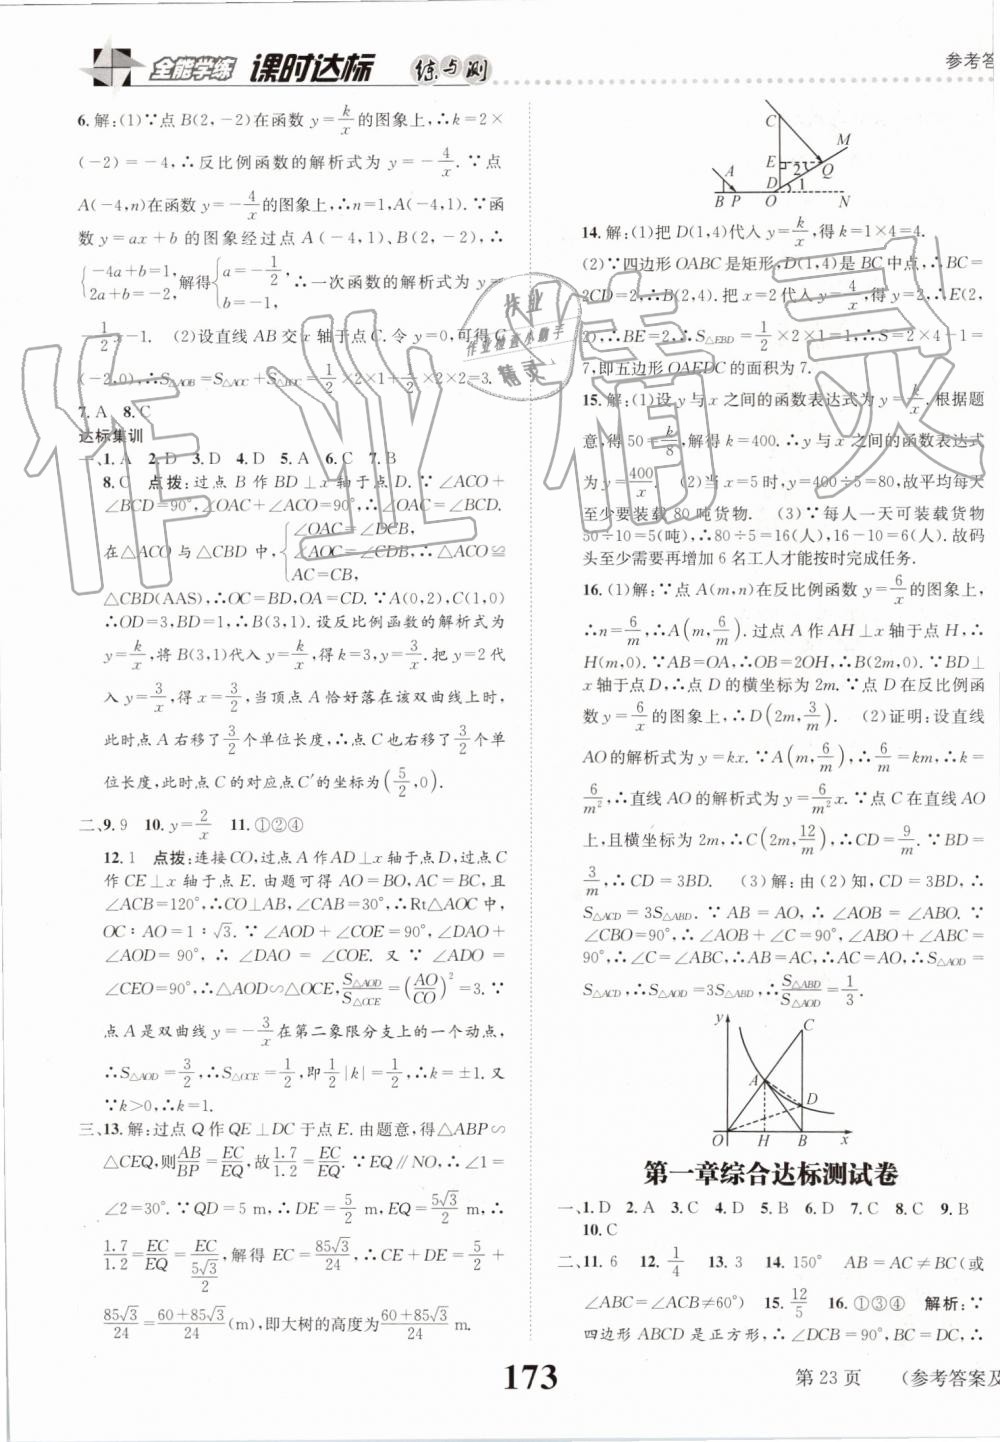 全能学练 课时达标 练与测
参考答
6.解:(1)∵点B(2,-2)在函数 y=k/x 的图象上,∴k=2×
(-2)=-4,∴反比例函数的解析式为 y=-4/x. ∵点
A(-4,n)在函数 y=-4/x 的图象上,∴n=1,A(-4,1). ∵函
数 y=ax+b 的图象经过点 A(-4,1)、B(2,-2),∴
{-4a+b=1, 2a+b=-2, 解得{a=-1/2, b=-1. ∴一次函数的解析式为 y=
-1/2x-1. (2)设直线 AB 交 x 轴于点C. 令 y=0,可得C
(-2,0),∴S△AOB=S△AOC+S△BOC=1/2×2×1+1/2×2×2=3.
7. A 8. C
达标集训
一、1. A 2. D 3. D 4. D 5. A 6. C 7. B
8. C 点拨:过点 B 作 BD⊥x 轴于点 D. ∵∠ACO+
∠BCD=90°,∠OAC+∠ACO=90°,∴∠OAC=∠BCD.
在△ACO 与△CBD 中,{∠OAC=∠DCB, ∠AOC=∠CDB, AC=CB, ∴△ACO≌
△CBD(AAS),∴OC=BD,OA=CD. ∵A(0,2),C(1,0)
∴OD=3,BD=1,∴B(3,1). 设反比例函数的解析式为
y=k/x,将 B(3,1)代入 y=k/x,得 k=3,∴y=3/x. 把 y=2代
入 y=3/x,得 x=3/2,当顶点 A 恰好落在该双曲线上时,
此时点 A 右移了3/2个单位长度,∴点 C 也右移了3/2个单
位长度,此时点 C 的对应点 C′的坐标为(5/2,0).
二、9. 9 10. y=2/x 11. ①②④
12. 1 点拨:连接 CO,过点 A 作 AD⊥x 轴于点 D,过点 C
作 CE⊥x 轴于点 E. 由题可得 AO=BO,AC=BC,且
∠ACB=120°,∴CO⊥AB,∠CAB=30°,∴Rt△AOC 中,
OC∶AO=1∶√3. ∵∠AOD+∠COE=90°,∠DAO+
∠AOD=90°,∴∠DAO=∠COE. 又∵∠ADO=
∠CEO=90°,∴△AOD∽△OCE,S△AOD/S△OCE=(AO/CO)²=3. ∵
点 A 是双曲线 y=-3/x 在第二象限分支上的一个动点,
∴S△AOD=3/2,∴S△OCE=1/2,即1/2|k|=1/2,∴k=±1. 又
∵k>0,∴k=1.
三、13. 解:过点 Q 作 QE⊥DC 于点 E. 由题意,得△ABP∽
△CEQ,则AB/BP=EC/EQ,故1.7/1.2=EC/EQ. ∵EQ∥NO,∴∠1=
∠2=30°. ∵QD=5 m,∴DE=5/2 m,EQ=5√3/2 m,∴
1.7/1.2=EC/EQ=EC/(5√3/2),解得 EC=85√3/24,∴CE+DE=5/2+
85√3/24=(60+85√3)/24(m),即大树的高度为(60+85√3)/24 m.
C
A
E
2
Q
M
B P
D
1
O
N
14. 解:(1)把 D(1,4)代入 y=k/x,得 k=1×4=4.
(2)∵四边形 OABC 是矩形,D(1,4)是 BC 中点,∴BC=
2CD=2,∴B(2,4). 把 x=2代入 y=4/x,得 y=2,∴E(2,
2),∴BE=2,∴S△EBD=1/2×2×1=1,∴S=2×4-1=
7,即五边形 OAEDC 的面积为 7.
15. 解:(1)设 y 与 x 之间的函数表达式为 y=k/x,根据题
意,得 50=k/8,解得 k=400. ∴y 与 x 之间的函数表达式
为 y=400/x. (2)当 x=5时,y=400÷5=80,故平均每天
至少要装载 80 吨货物. (3)∵每人一天可装载货物
50÷10=5(吨),∴80÷5=16(人),16-10=6(人). 故码
头至少需要再增加 6 名工人才能按时完成任务.
16. (1)解:∵点 A(m,n)在反比例函数 y=6/x 的图象上,
∴n=6/m,∴A(m,6/m). 过点 A 作 AH⊥x 轴于点 H,∴
H(m,0). ∵AB=OA,∴OB=2OH,∴B(2m,0). ∵BD⊥
x 轴于点 D,∴点 D 的横坐标为 2m. ∵点 D 在反比例函
数 y=6/x 的图象上,∴D(2m,3/m). (2)证明:设直线
AO 的解析式为 y=kx. ∵A(m,6/m),∴6/m=km,∴k=
6/m²,∴直线 AO 的解析式为 y=6/m² x. ∵点 C 在直线 AO
上,且横坐标为 2m,∴C(2m,12/m),∴CD=9/m. ∵BD=
3/m,∴CD=3BD. (3)解:由(2)知,CD=3BD,∴
S△ACD=3S△ABD. ∵AB=AO,∴∠AOB=∠ABO. ∵
∠CBO=90°,∴∠AOB+∠C=90°,∠ABO+∠ABC=
90°,∴∠C=∠ABC,∴AB=AC,∴AO=AC,∴S△AOD=
S△ACD,∴S△AOD=3S△ABD,∴S△ABD/S△AOD=1/3.
y
C
A
D
O H B x
第一章综合达标测试卷
一、1. D 2. A 3. C 4. D 5. B 6. D 7. C 8. C 9. B
10. C
二、11. 6 12. 1/4 13. 3 14. 150° AB=AC≠BC(或
∠ABC=∠ACB≠60°) 15. 12/5 16. ①③④ 解析:∵
四边形 ABCD 是正方形,∴∠DCB=90°,BC=DC,∴
173
第 23 页 (参考答案及
作业精灵
作业
作业检查小助手
精灵